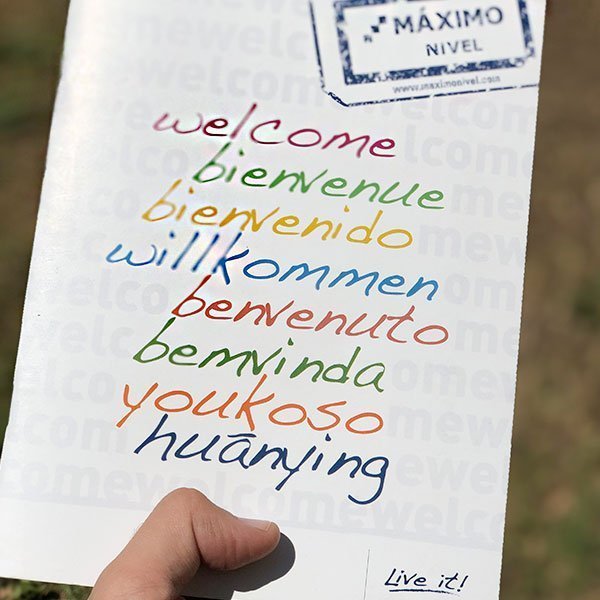 MÁXIMO
NIVEL
www.maximonivel.com
welcome
bienvenue
bienvenido
willkommen
benvenuto
bemvinda
youkoso
huānying
Live it!